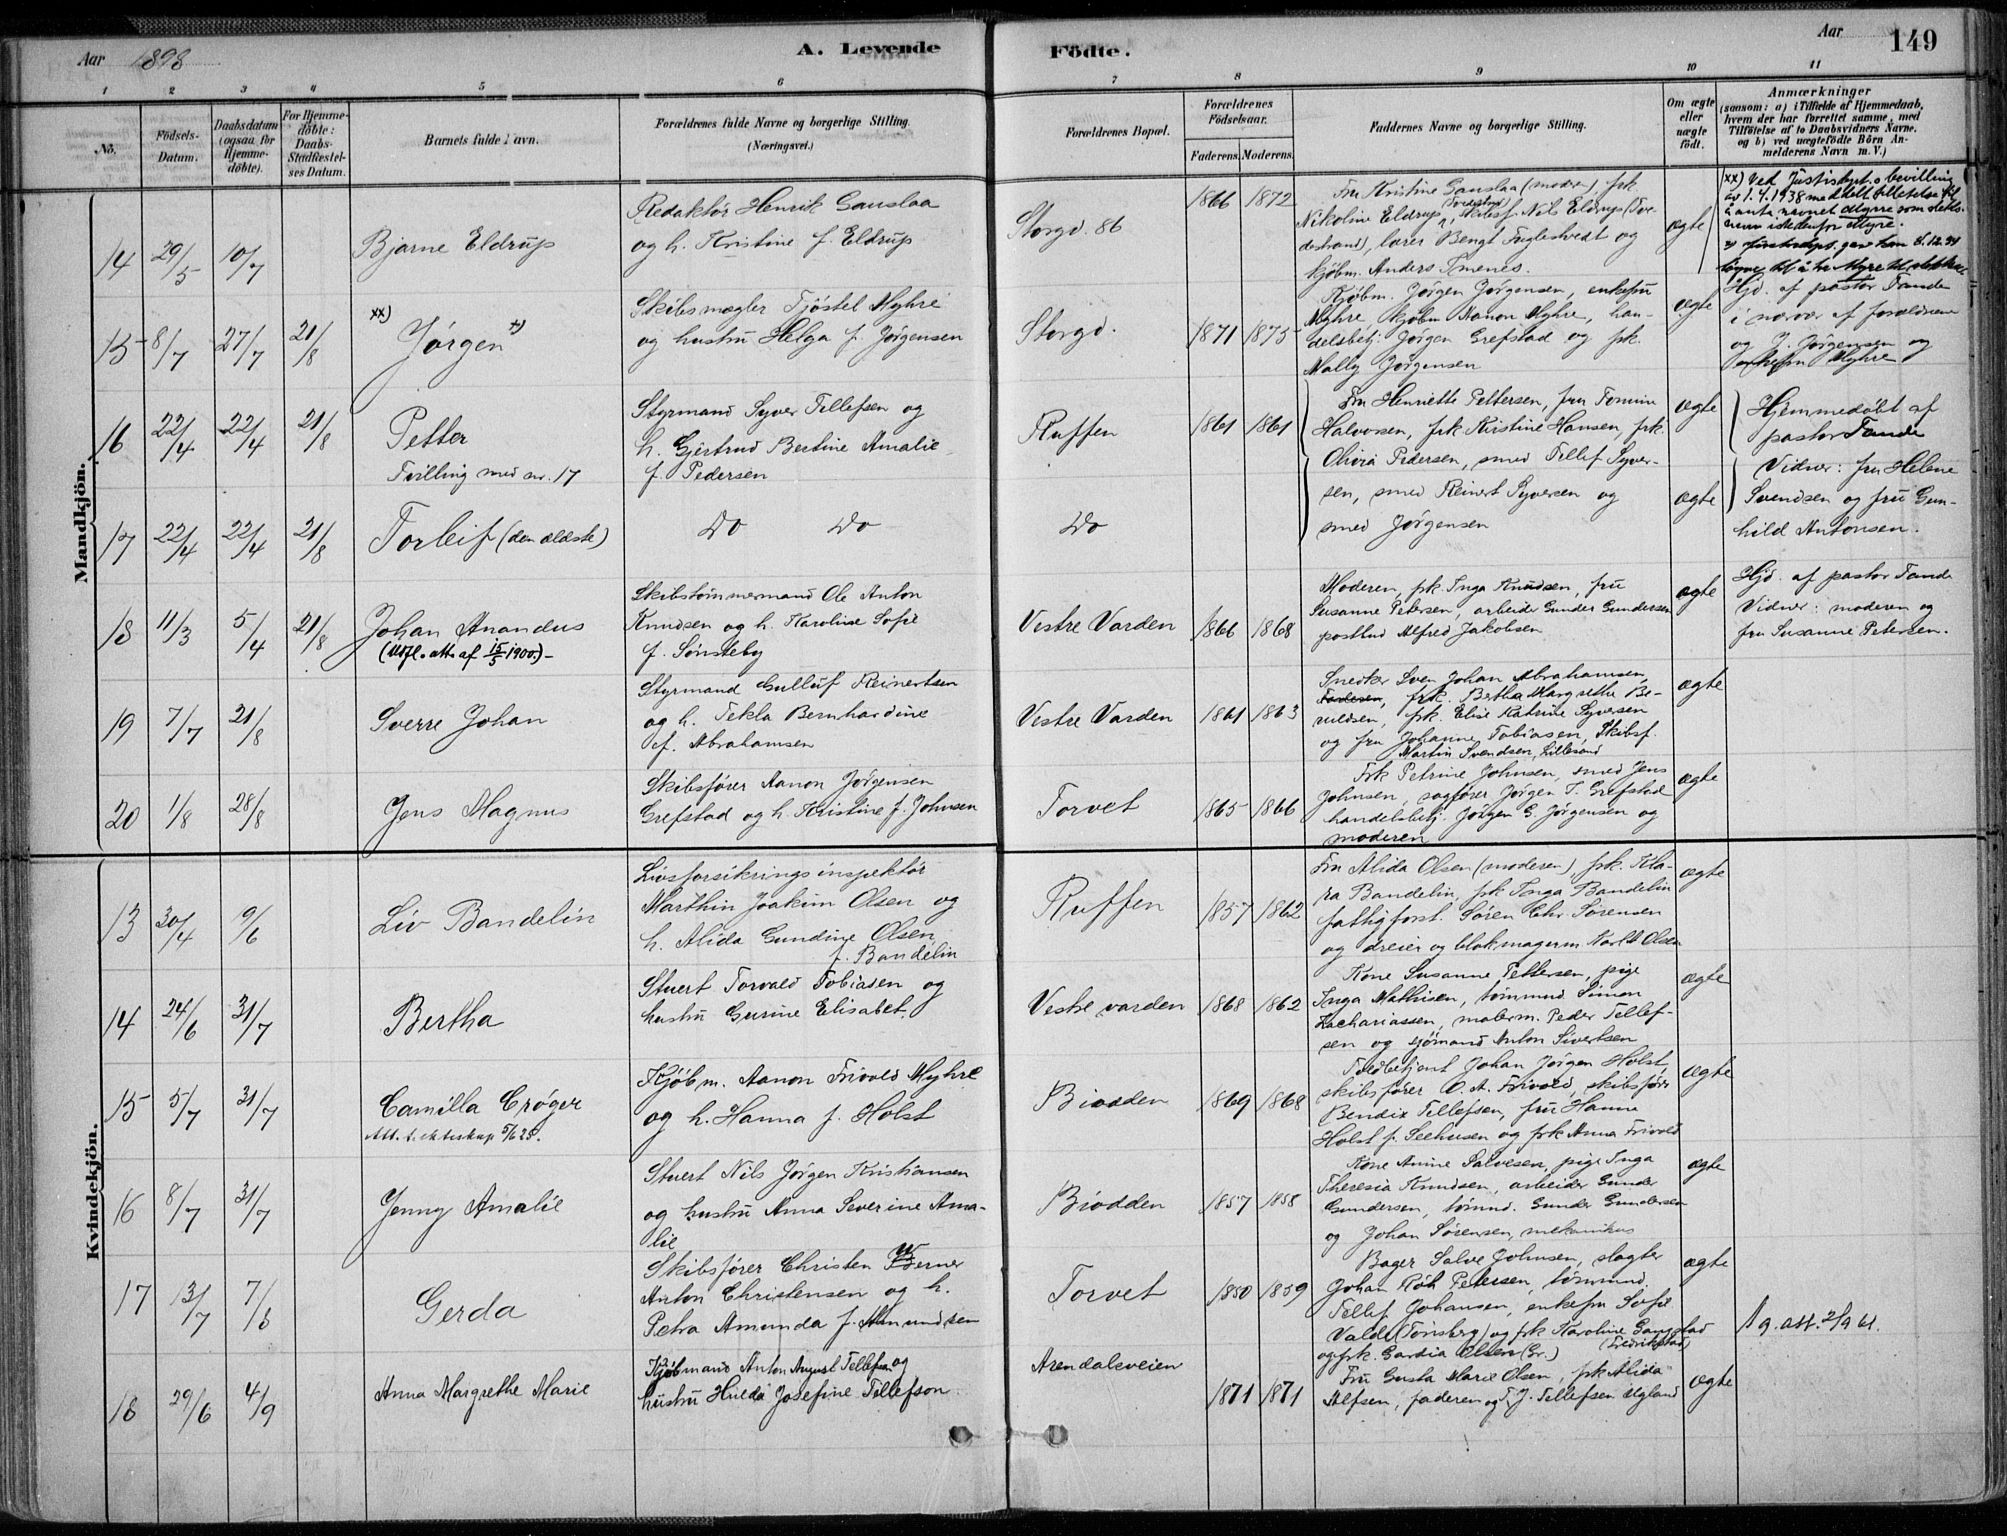 Aar 1898
A. Levende Födte.
Aar 149
1 2 3 4 5 6 7 8 9 10 11
No.
Födsels-Datum.
Daabsdatum (ogsaa för Hjemme-döbte).
For Hjemme-döbte: Daabs-Stadfæstel-ses Datum.
Barnets fulde Navn.
Forældrenes fulde Navne og borgerlige Stilling.
(Næringsvei.)
Forældrenes Bopæl.
Forældrenes Födselsaar.
Faderens. Moderens.
Faddernes Navne og borgerlige Stilling.
Om ægte eller uægte födt.
Anmærkninger
(saasom: a) i Tilfælde af Hjemmedaab,
hvem der har forrettet samme, med
Tilföielse af to Daabsvidners Navne.
og b) ved uægtefödte Börn An-
melderens Navn m. V.)
Mandkjön.
14 29/5 10/7
Bjarne Eldrup
Redaktør Henrik Gauslaa
og h. Kristine f. Eldrup
Storgd. 86
1866 1872
Fru Kristine Gauslaa (moderen), frk.
Nikoline Eldrup, Tvedestrand, skibsf. Nils Eldrup (Tve-
destrand), lærer Bengt Fuglestvedt og
kjøbm. Anders Smenes.
ægte
xx) Ved Justisdept.s bevilling
av 1.4.1938 meddelt tilladelse til
å anta navnet Myrre som slekts-
navn istedenfor Myre.
15 8/7 27/7 21/8
xx) Jørgen x)
Skibsmægler Tjøstel Myhre
og hustru Helga f. Jørgensen
Storgd.
1871 1875
Kjøbm. Jørgen Jørgensen, enkefru
Myhre, kjøbm Aanon Myhre, han-
delsbetj. Jørgen Grefstad og frk.
Mally Jørgensen
ægte
Hjd. af pastor Tande
i nærvær af forældrene
og J. Jørgensen og
enkefru Myhre
16 22/4 22/4 21/8
Petter
Tvilling med nr. 17
Styrmand Syver Tellefsen og
h. Gjertrud Bertine Amalie
f. Pedersen
Ruffen
1861 1861
Fru Henriette Pettersen, fru Tomine
Halvorsen, frk Kristine Hansen, frk.
Olivia Pedersen, smed Tellef Syver-
sen, smed Reinert Syversen og
smed Jørgensen
ægte
Hjemmedøbt af
pastor Tande
Vidner: fru Helene
Svendsen og fru Gun-
hild Antonsen.
17 22/4 22/4 21/8
Torleif (den ældste)
Do Do
Do
ægte
18 11/3 5/4 21/8
Johan Anandus
(Udfl. att. af 15/5 1900.)
Skibstømmermand Ole Anton
Knudsen og h. Karoline Sofie
f. Sønsteby
Vestre Varden
1866 1868
Moderen, frk Inga Knudsen, fru
Susanne Petersen, arbeider Gunder Gundersen
postbud Alfred Jakobsen
ægte
Hjd. af pastor Tande
Vidner: moderen og
fru Susanne Petersen.
19 7/7 21/8
Sverre Johan
Styrmand Gulluf Reinertsen
og h. Tekla Bernhardine
f. Abrahamsen
Vestre Varden
1861 1863
Snedker Sven Johan Abrahamsen,
frk. Bertha Margrethe Be-
ruldsen, frk. Elise Katrine Syversen
og fru Johanne Tobiasen, Skibsf.
Martin Svendsen, Lillesand
ægte
20 1/8 28/8
Jens Magnus
Skibsfører Aanon Jørgensen
Grefstad og h. Kristine f. Johnsen
Torvet
1865 1866
Frk Petrine Johnsen, smed Jens
Johnsen, sagfører Jørgen T. Grefstad
handelsbetj. Jørgen G. Jørgensen og
moderen
ægte
Kvindekjön.
13 30/4 9/6
Liv Bandelin
Livsforsikringsinspektør
Marthin Joakim Olsen og
h. Alida Gundine Olsen
f. Bandelin
Ruffen
1857 1862
Fru Alida Olsen (moderen), frk. Kla-
ra Bandelin, frk Inga Bandelin
fattigforst. Søren Chr. Sørensen
og dreier og blokmagerm Karl M Olsen
ægte
14 24/6 31/7
Bertha
Stuert Torvald Tobiasen og
hustru Gurine Elisabet.
Vestre varden
1868 1862
Kone Susanne Pettersen, pige
Inga Mathisen, tømmd. Simon
Zachariassen, malerm. Peder Tellef-
sen og sjømand Anton Sivertsen
ægte
15 5/7 31/7
Camilla Crøger
Att. t. ekteskap 5/6 25.
Kjøbm. Aanon Frivold Myhre
og h. Hanna f. Holst
Biodden
1869 1868
Toldbetjent Johan Jørgen Holst,
skibsfører O. A. Frivold, skibsfører
Bendix Tellefsen, fru Hanne
Holst f. Seehusen og frk Anna Frivold
ægte
16 8/7 31/7
Jenny Amalie
Stuert Nils Jørgen Kristiansen
og hustru Anna Severine Ama-
lie
Biodden
1857 1858
Kone Anine Salvesen, pige Inga
Theresia Knudsen, arbeider Gunder
Gundersen, tømmd. Gunder Gundersen
og Johan Sørensen, mekanikus
ægte
17 13/7 7/8
Gerda
Skibsfører Christen Werner
Anton Christensen og h.
Petra Amunda f. Amundsen
Torvet
1850 1859
Bager Salve Johnsen, slagter
Johan Röh Petersen, tømmd.
Tellef Johansen, enkefru Sofie
Valde (Tønsberg) og frk Karoline Gangstad
(Fredrikstad)
og frk. Gardia Olsen (Gr.)
ægte
Ng. att. 2/9 61.
18 29/6 4/9
Anna Margrethe Marie
Kjøbmand Anton August Tellefsen og
hustru Hulda Josefine Tellefsen
Arendalsveien
1871 1871
Fru Gusta Marie Olsen, frk Alida
Alfsen, faderen og T. J. Tellefsen Ugland
ægte